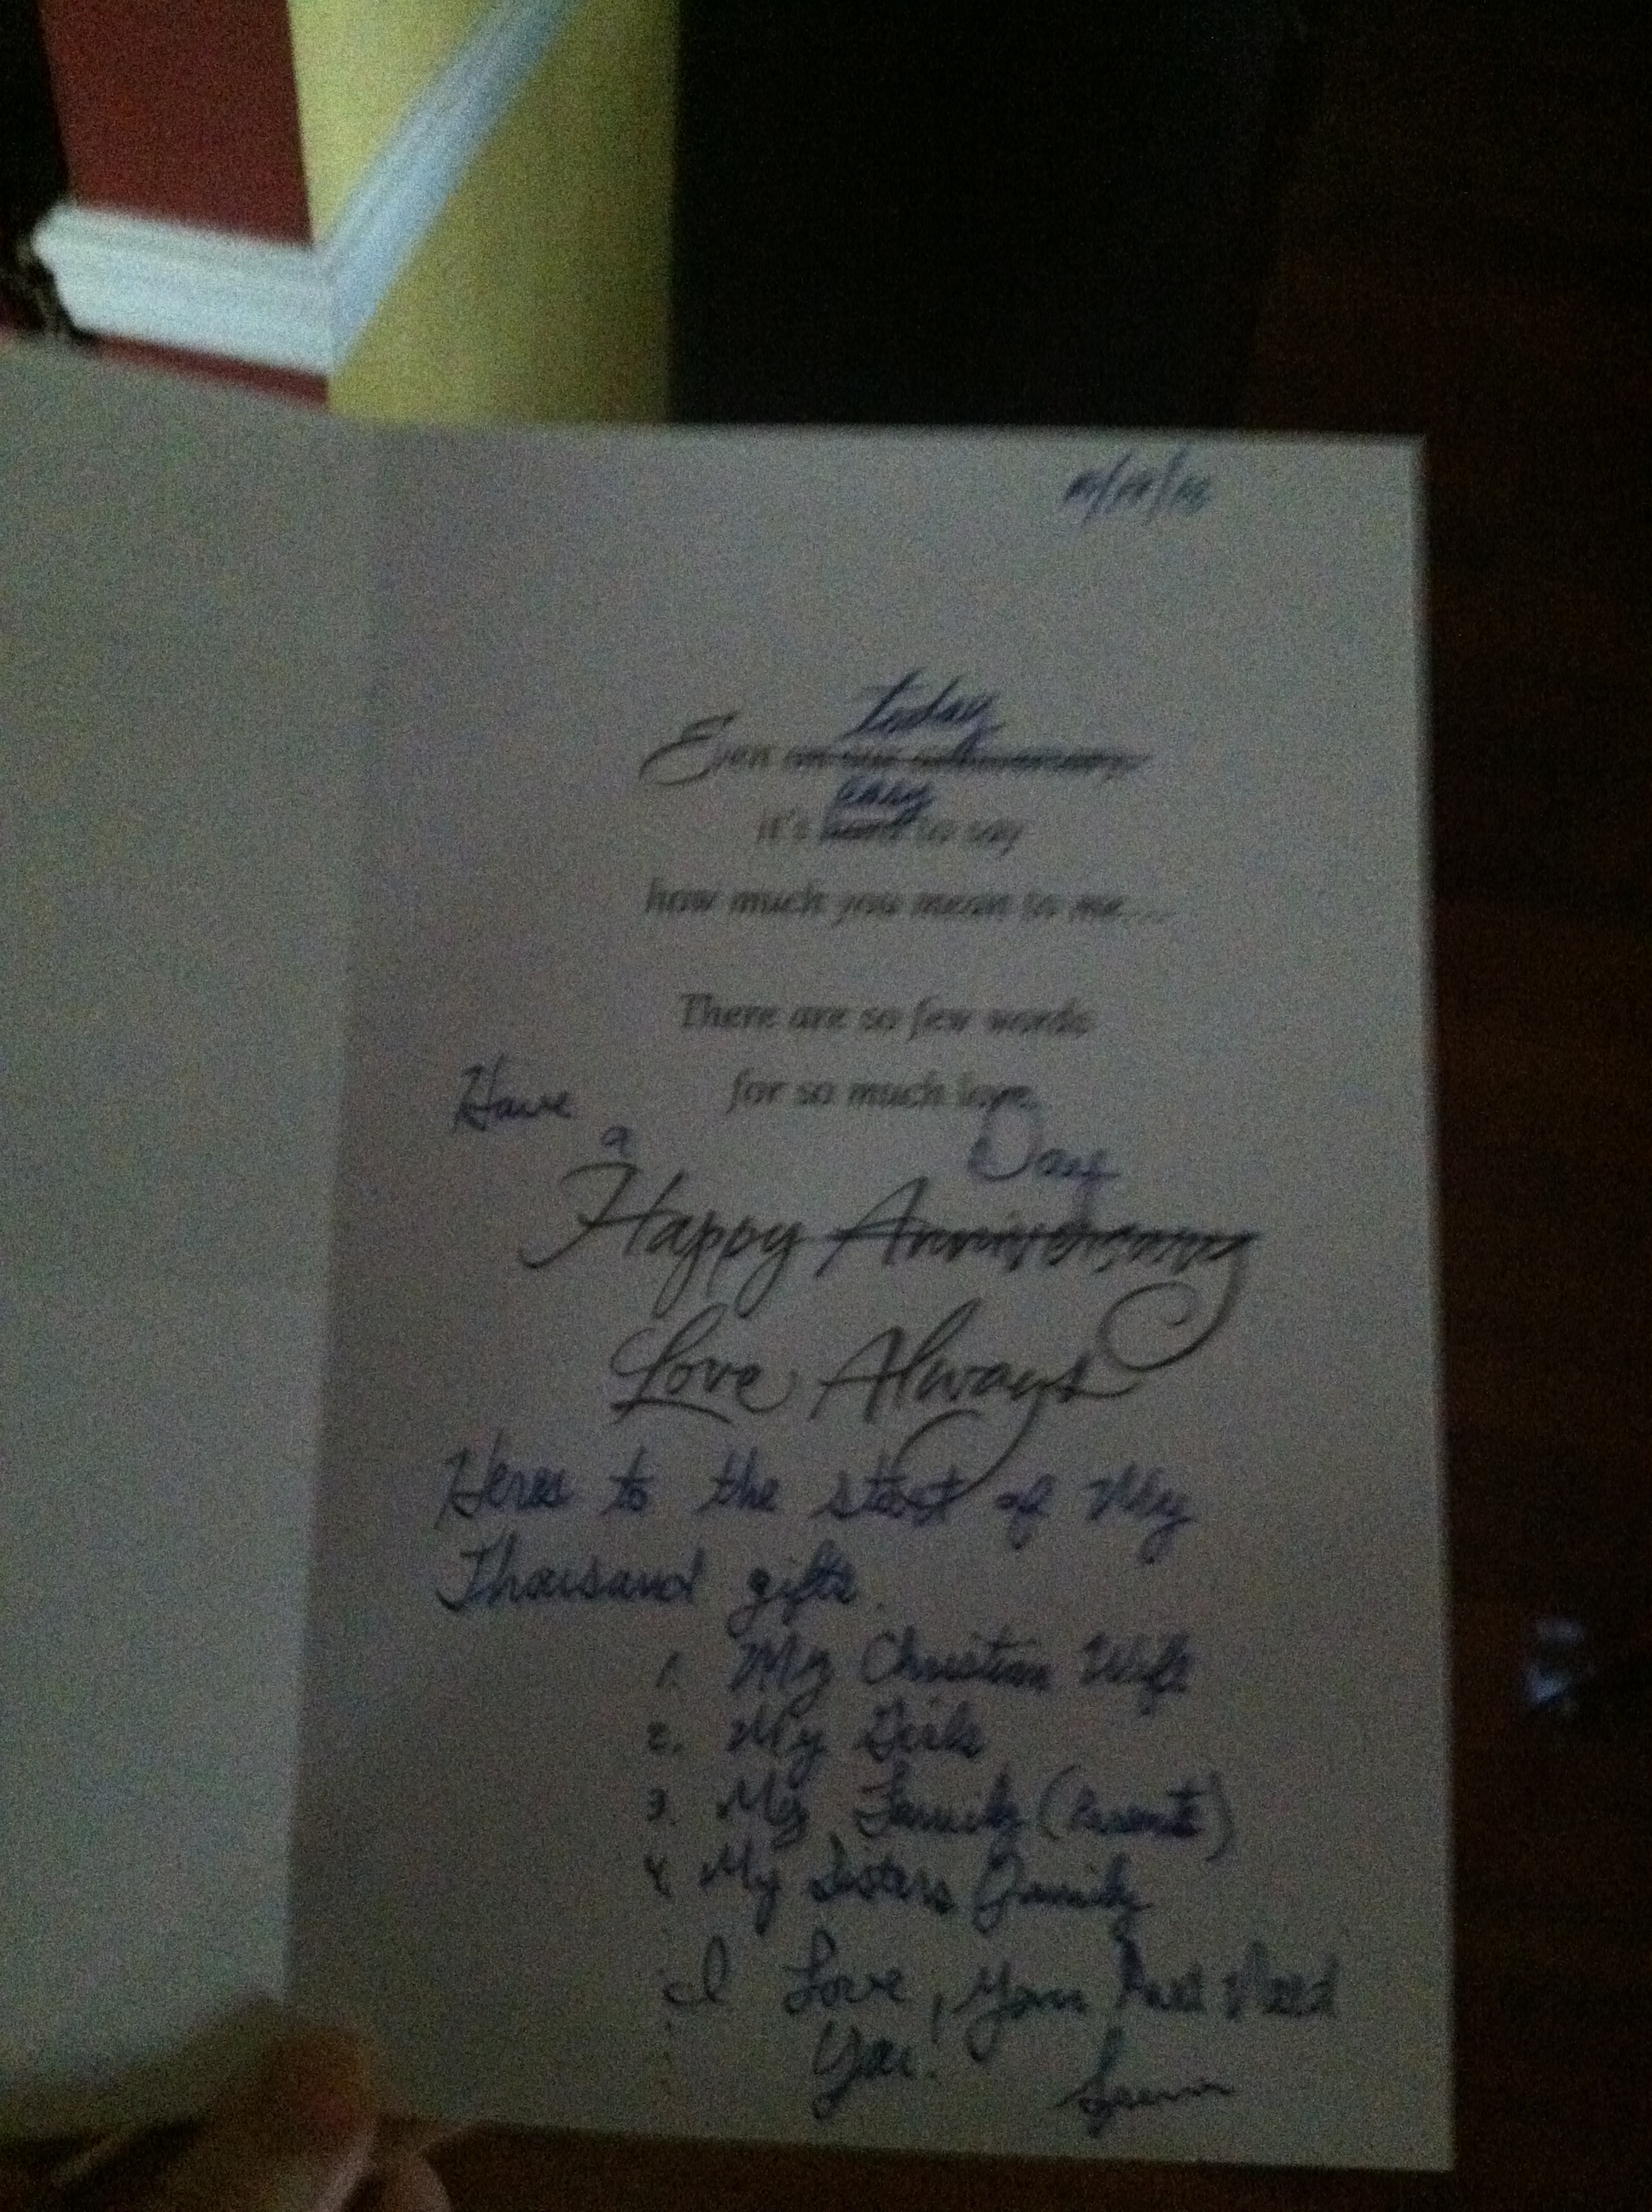 today
Even on our anniversary,
easy
it's hard to say
how much you mean to me...
There are so few words
for so much love.
Have a Day
Happy Anniversary
Love Always
Heres to the start of My
Thousand gifts.
1. My Christian Wife
2. My Girls
3. My Family (Parents)
4 My Sisters Family
I Love, You And Need
You.